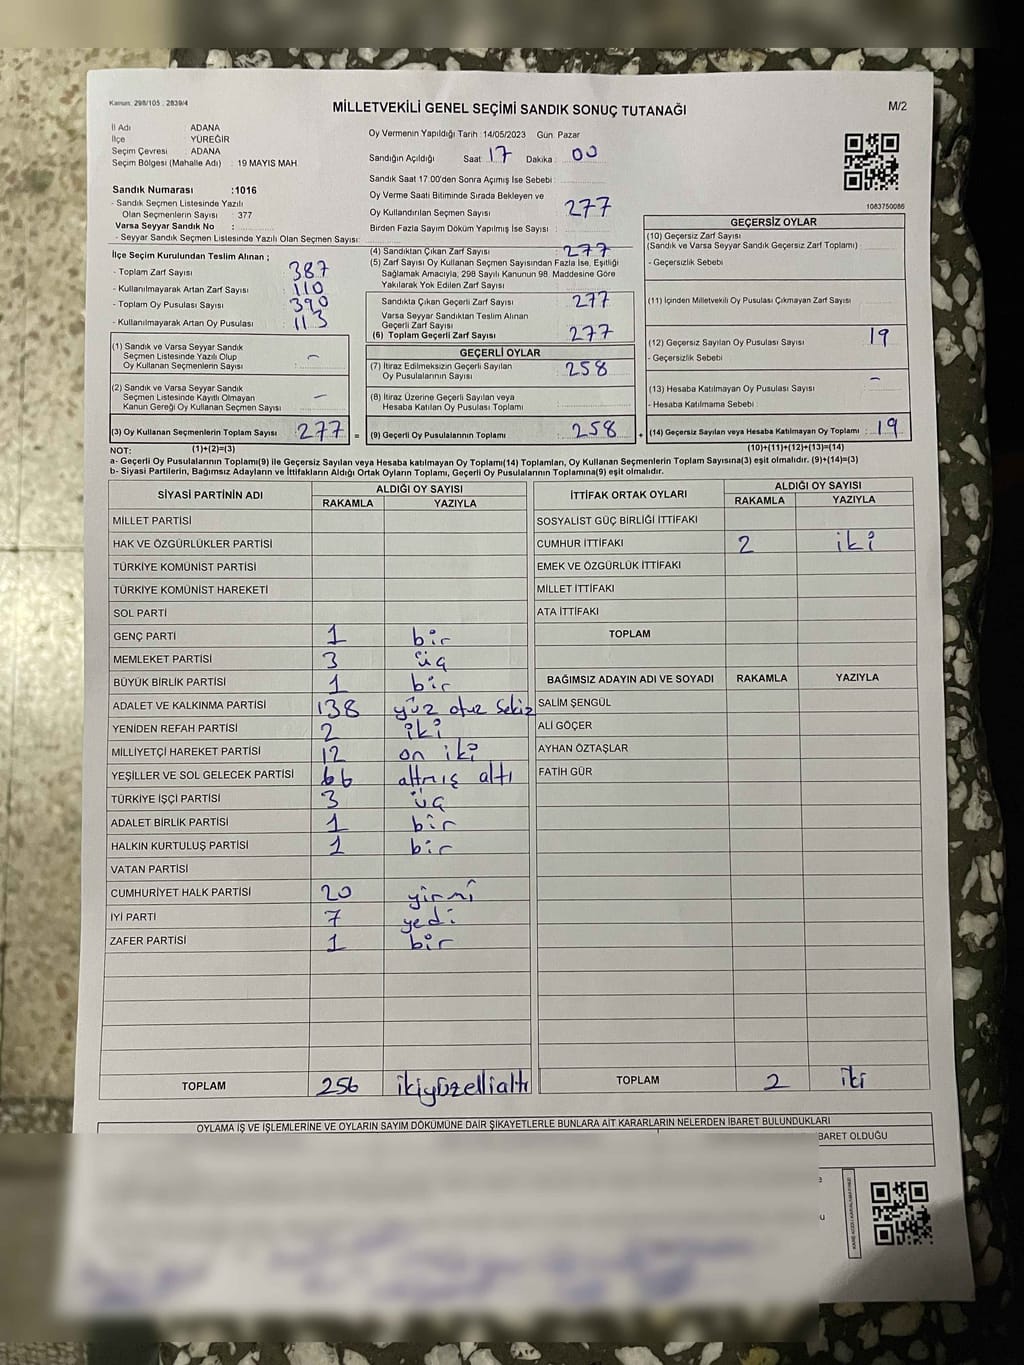 Kanun: 298/105 , 2839/4
MİLLETVEKİLİ GENEL SEÇİMİ SANDIK SONUÇ TUTANAĞI
M/2
İl Adı ADANA
İlçe YÜREĞİR
Seçim Çevresi ADANA
Seçim Bölgesi (Mahalle Adı) : 19 MAYIS MAH.
Sandık Numarası :1016
- Sandık Seçmen Listesinde Yazılı
Olan Seçmenlerin Sayısı : 377
Varsa Seyyar Sandık No :
- Seyyar Sandık Seçmen Listesinde Yazılı Olan Seçmen Sayısı:
İlçe Seçim Kurulundan Teslim Alınan ;
- Toplam Zarf Sayısı 387
- Kullanılmayarak Artan Zarf Sayısı 110
- Toplam Oy Pusulası Sayısı 390
- Kullanılmayarak Artan Oy Pusulası 113
(1) Sandık ve Varsa Seyyar Sandık
Seçmen Listesinde Yazılı Olup
Oy Kullanan Seçmenlerin Sayısı : -
(2) Sandık ve Varsa Seyyar Sandık
Seçmen Listesinde Kayıtlı Olmayan
Kanun Gereği Oy Kullanan Seçmen Sayısı -
(3) Oy Kullanan Seçmenlerin Toplam Sayısı 277 =
Oy Vermenin Yapıldığı Tarih : 14/05/2023 Gün: Pazar
Sandığın Açıldığı Saat 17 Dakika : 00
Sandık Saat 17:00'den Sonra Açımış İse Sebebi :
Oy Verme Saati Bitiminde Sırada Bekleyen ve
Oy Kullandırılan Seçmen Sayısı 277
Birden Fazla Sayım Döküm Yapılmış İse Sayısı :
(4) Sandıktan Çıkan Zarf Sayısı : 277
(5) Zarf Sayısı Oy Kullanan Seçmen Sayısından Fazla İse, Eşitliği
Sağlamak Amacıyla, 298 Sayılı Kanunun 98. Maddesine Göre
Yakılarak Yok Edilen Zarf Sayısı
Sandıkta Çıkan Geçerli Zarf Sayısı : 277
Varsa Seyyar Sandıktan Teslim Alınan
Geçerli Zarf Sayısı
(6) Toplam Geçerli Zarf Sayısı : 277
GEÇERLİ OYLAR
(7) İtiraz Edilmeksizin Geçerli Sayılan
Oy Pusulalarının Sayısı : 258
(8) İtiraz Üzerine Geçerli Sayılan veya
Hesaba Katılan Oy Pusulası Toplamı
(9) Geçerli Oy Pusulalarının Toplamı : 258 +
1083750086
GEÇERSİZ OYLAR
(10) Geçersiz Zarf Sayısı
(Sandık ve Varsa Seyyar Sandık Geçersiz Zarf Toplamı)
- Geçersizlik Sebebi
(11) İçinden Milletvekili Oy Pusulası Çıkmayan Zarf Sayısı
(12) Geçersiz Sayılan Oy Pusulası Sayısı 19
- Geçersizlik Sebebi
(13) Hesaba Katılmayan Oy Pusulası Sayısı -
- Hesaba Katılmama Sebebi :
(14) Geçersiz Sayılan veya Hesaba Katılmayan Oy Toplamı : 19
NOT: (1)+(2)=(3) (10)+(11)+(12)+(13)=(14)
a- Geçerli Oy Pusulalarının Toplamı(9) ile Geçersiz Sayılan veya Hesaba katılmayan Oy Toplamı(14) Toplamları, Oy Kullanan Seçmenlerin Toplam Sayısına(3) eşit olmalıdır. (9)+(14)=(3)
b- Siyasi Partilerin, Bağımsız Adayların ve İttifakların Aldığı Ortak Oyların Toplamı, Geçerli Oy Pusulalarının Toplamına(9) eşit olmalıdır.
SİYASİ PARTİNİN ADI ALDIĞI OY SAYISI
RAKAMLA YAZIYLA
MİLLET PARTİSİ
HAK VE ÖZGÜRLÜKLER PARTİSİ
TÜRKİYE KOMÜNİST PARTİSİ
TÜRKİYE KOMÜNİST HAREKETİ
SOL PARTİ
GENÇ PARTİ 1 bir
MEMLEKET PARTİSİ 3 üç
BÜYÜK BİRLİK PARTİSİ 1 bir
ADALET VE KALKINMA PARTİSİ 138 yüz otuz sekiz
YENİDEN REFAH PARTİSİ 2 iki
MİLLİYETÇİ HAREKET PARTİSİ 12 on iki
YEŞİLLER VE SOL GELECEK PARTİSİ 66 altmış altı
TÜRKİYE İŞÇİ PARTİSİ 3 üç
ADALET BİRLİK PARTİSİ 1 bir
HALKIN KURTULUŞ PARTİSİ 1 bir
VATAN PARTİSİ
CUMHURİYET HALK PARTİSİ 20 yirmi
İYİ PARTİ 7 yedi
ZAFER PARTİSİ 1 bir
TOPLAM 256 ikiyüzellialtı
İTTİFAK ORTAK OYLARI ALDIĞI OY SAYISI
RAKAMLA YAZIYLA
SOSYALİST GÜÇ BİRLİĞİ İTTİFAKI
CUMHUR İTTİFAKI 2 iki
EMEK VE ÖZGÜRLÜK İTTİFAKI
MİLLET İTTİFAKI
ATA İTTİFAKI
TOPLAM
BAĞIMSIZ ADAYIN ADI VE SOYADI RAKAMLA YAZIYLA
SALİM ŞENGÜL
ALİ GÖÇER
AYHAN ÖZTAŞLAR
FATİH GÜR
TOPLAM 2 iki
OYLAMA İŞ VE İŞLEMLERİNE VE OYLARIN SAYIM DÖKÜMÜNE DAİR ŞİKAYETLERLE BUNLARA AİT KARARLARIN NELERDEN İBARET BULUNDUKLARI
BARET OLDUĞU